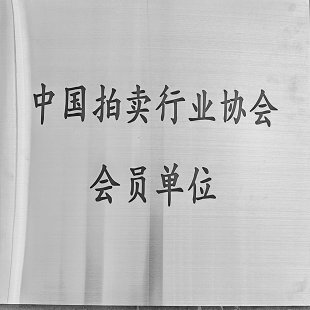 中国拍卖行业协会
会员单位